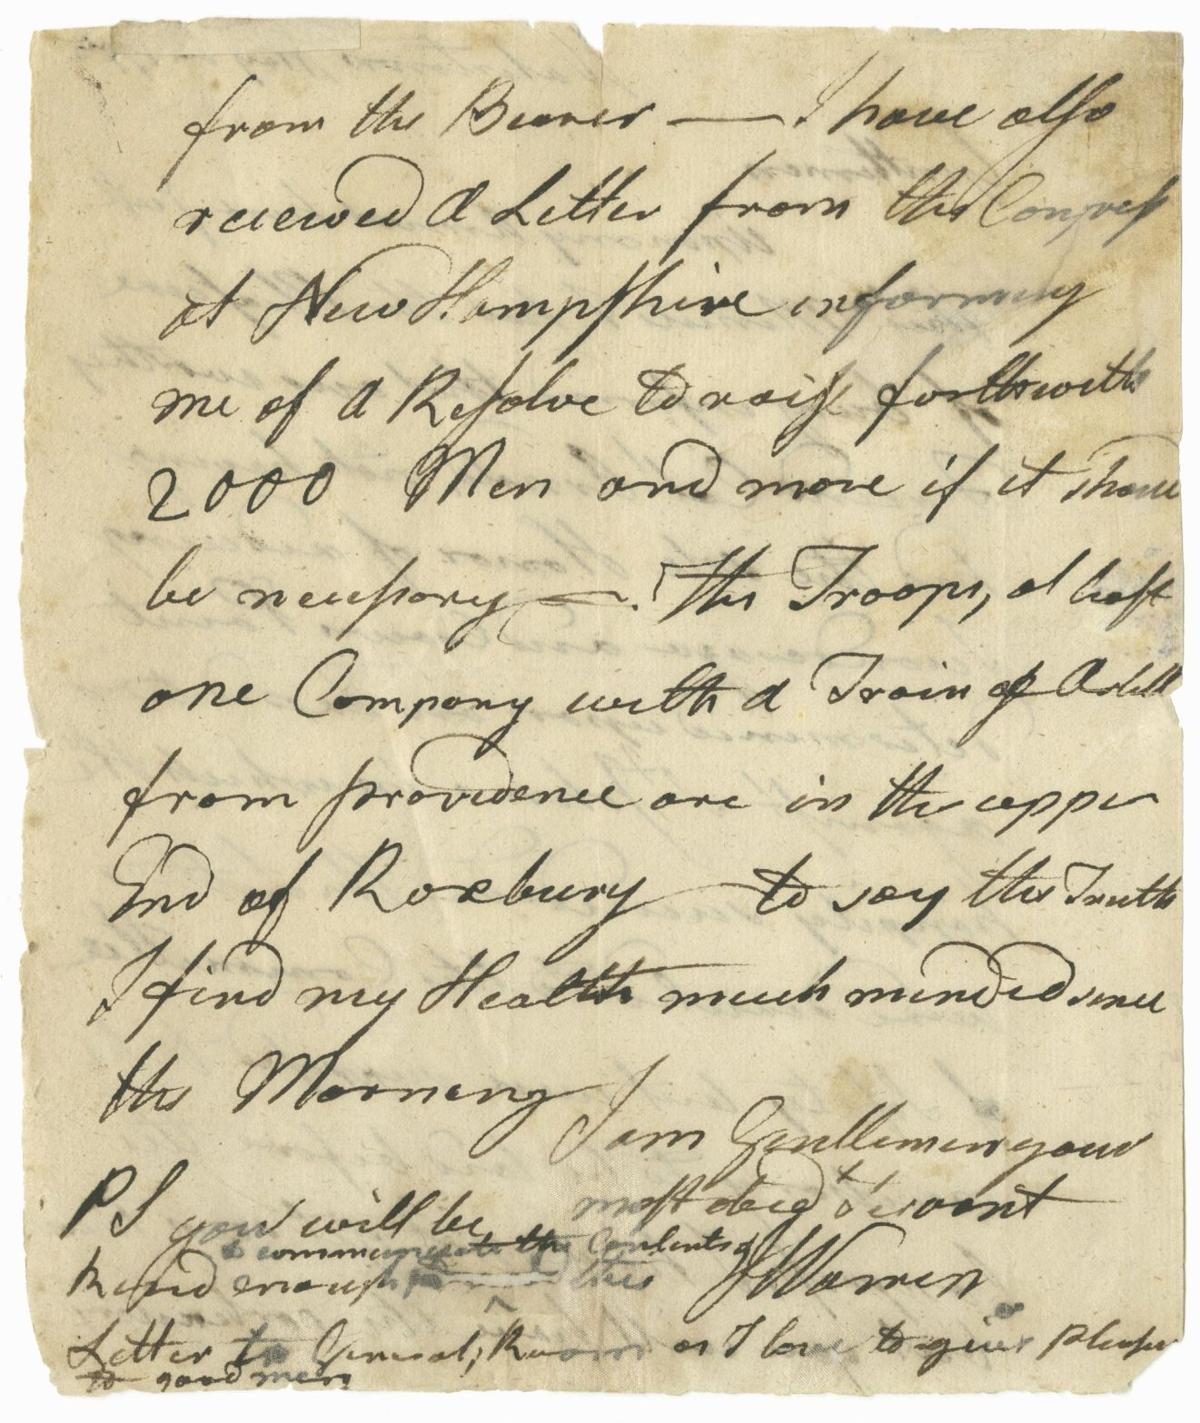 from the Bearer — I have also
received a Letter from the Congress
at New Hampshire informing
me of a Resolve to raise forthwith
2000 Men and more if it should
be necessary —. The Troops, at least
one Company with a Train of Artill
from providence are in the upper
End of Roxbury to say the Truth
I find my Health much mended since
this Morning
I am Gentlemen your
most obed.t Servant
J Warren
PS you will be
to communicate the Contents of
kind enough this
Letter to General as I love to give pleasure
to good men